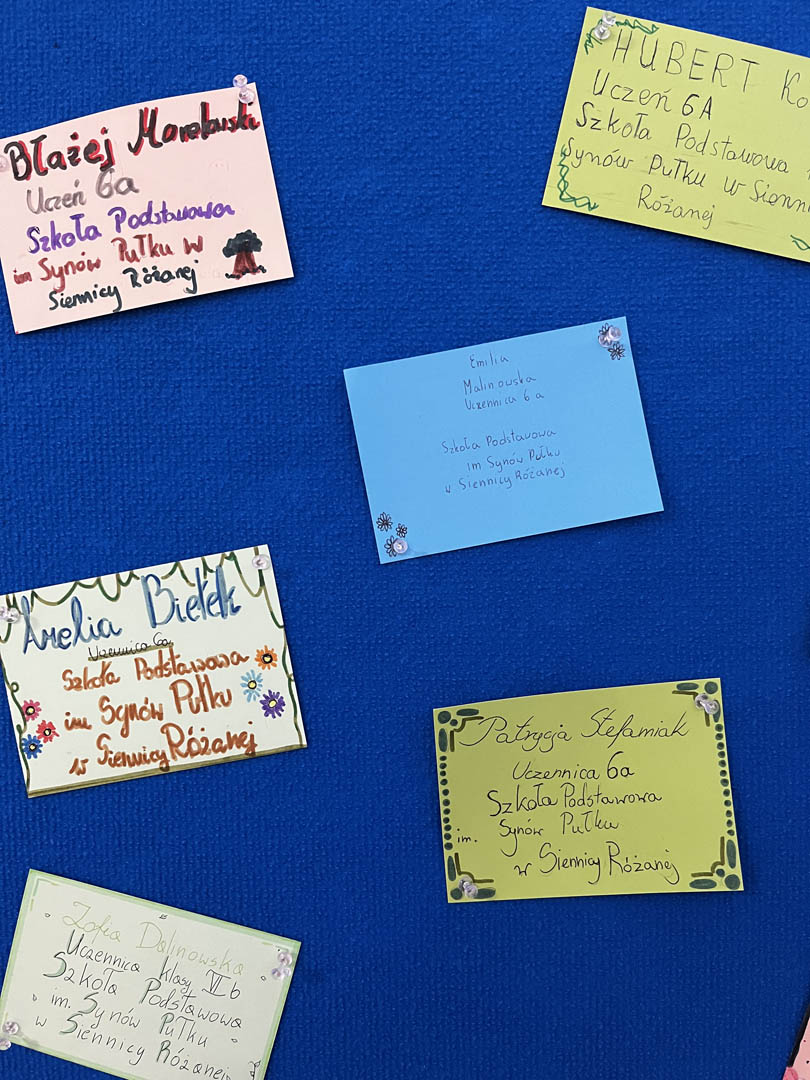 Błażej
Uczeń 6a
Szkoła Podstawowa
im Synów Pułku w
Siennicy Różanej
HUBERT
Uczeń 6A
Szkoła Podstawowa
Synów Pułku w
Różanej
Emilia
Malinowska
Uczennica 6 a
Szkoła Podstawowa
im Synów Pułku
w Siennicy Różanej
Amelia Bielek
Uczennica 6a
Szkoła Podstawowa
im Synów Pułku
w Siennicy Różanej
Patrycja Stefaniak
Uczennica 6a
Szkoła Podstawowa
im. Synów Pułku
w Siennicy Różanej
Zofia Dalinowska
Uczennica klasy VI b
Szkoła Podstawowa
im. Synów Pułku
w Siennicy Różanej